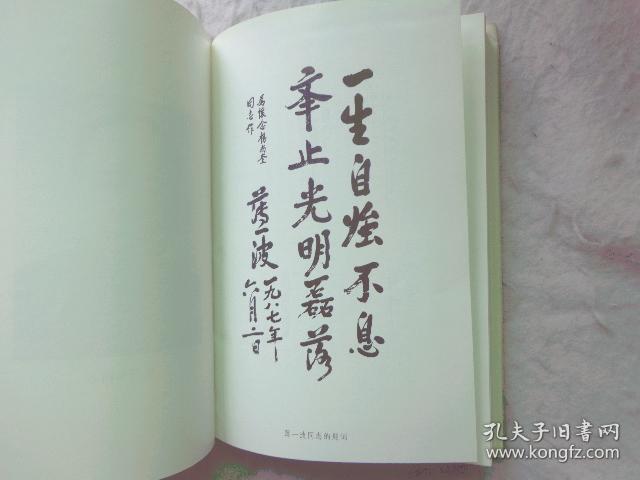 一生自强不息
举止光明磊落
为怀念杨尚奎
同志作
薄一波一九八七年
六月二日
薄一波同志的题词
孔夫子旧书网
www.kongfz.com